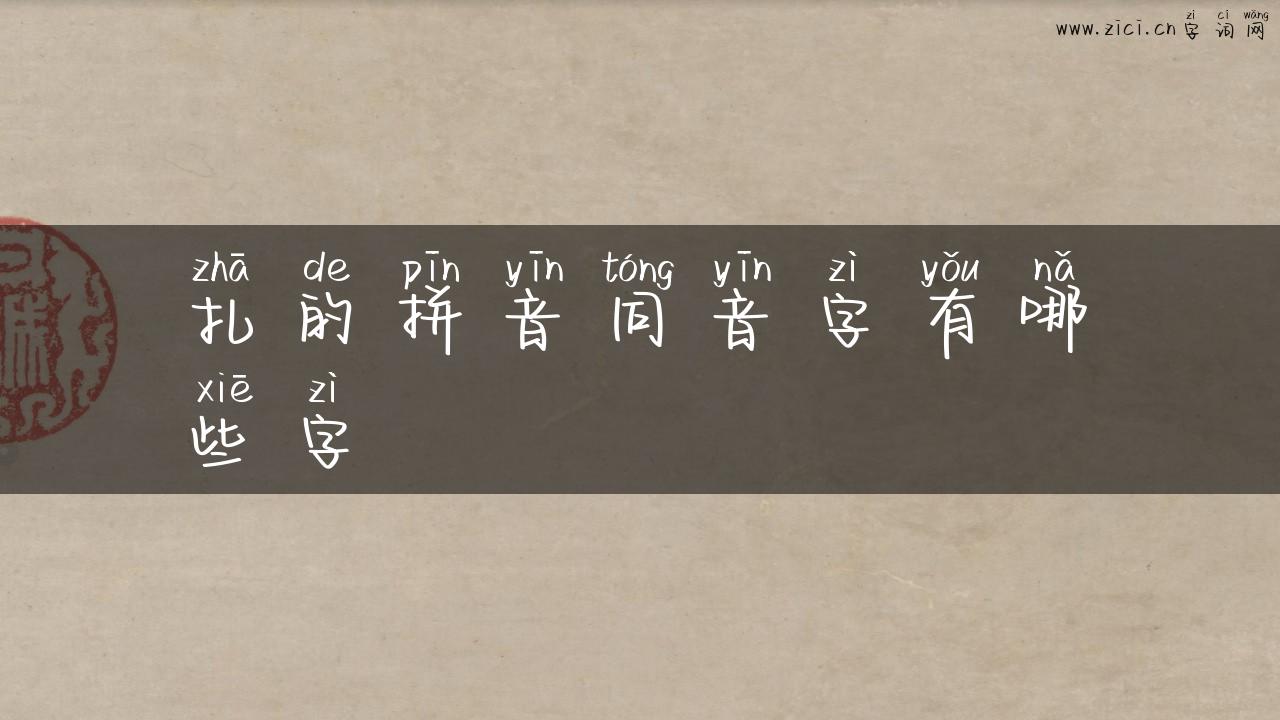 zì cí wǎng
www.zici.cn 字词网
zhā de pīn yīn tóng yīn zì yǒu nǎ
扎的拼音同音字有哪
xiē zì
些字